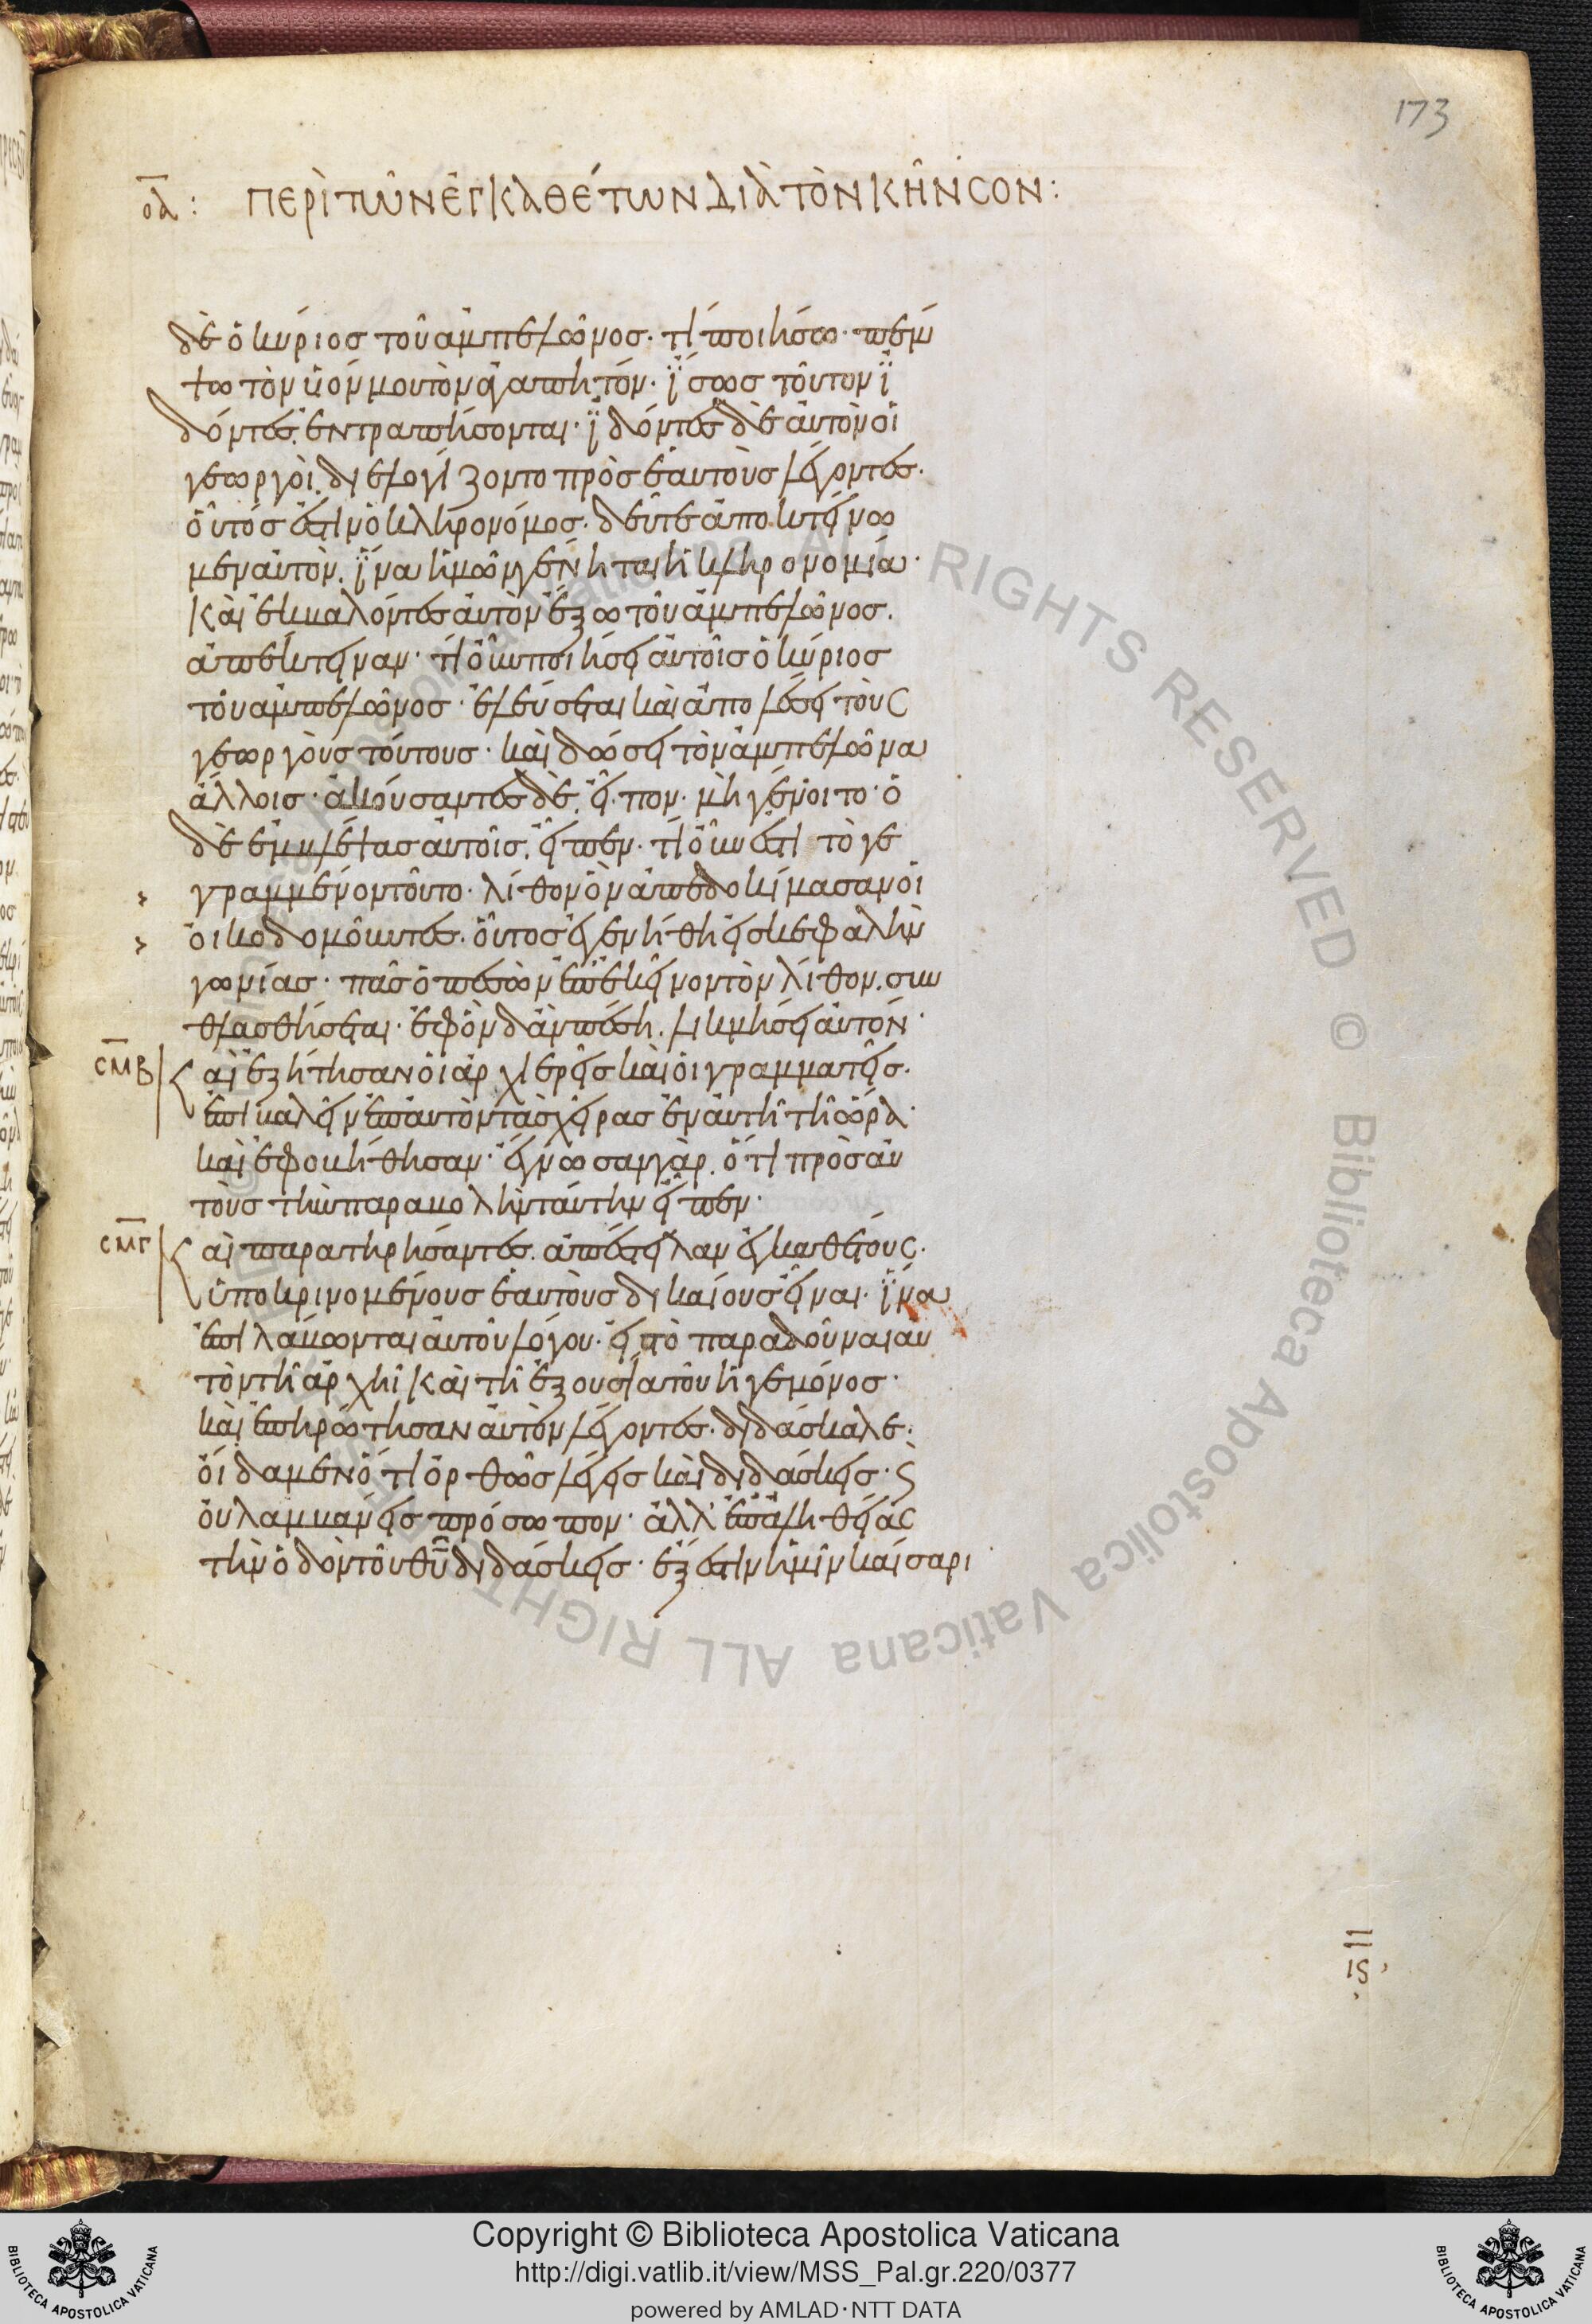 173
οα: ΠΕΡῚ ΤΩ͂Ν ἘΓΚΑΘΈΤΩΝ ΔΙᾺ ΤῸΝ ΚΗ͂ΝϹΟΝ:
δὲ ὁ κύριος τοῦ ἀμπελῶνος· τί ποιήσω· πέμ
ψω τὸν υἱόν μου τὸν ἀγαπητόν· ἴσως τοῦτον ἰ
δόντες ἐντραπήσονται· ἰδόντες δὲ αὐτὸν οἱ
γεωργοὶ. διελογίζοντο πρὸς ἑαυτοὺς λέγοντες·
οὗτός ἐστιν ὁ κληρονόμος· δεῦτε ἀποκτείνω
μεν αὐτόν. ἵνα ἡμῶν γένηται ἡ κληρονομία·
καὶ ἐκβαλόντες αὐτὸν ἔξω τοῦ ἀμπελῶνος.
ἀπέκτειναν· τί οὖν ποιήσει αὐτοῖς ὁ κύριος
τοῦ ἀμπελῶνος· ἐλεύσεται καὶ ἀπολέσει τοὺς
γεωργοὺς τούτους· καὶ δώσει τὸν ἀμπελῶνα
ἄλλοις· ἀκούσαντες δὲ. εἶπον· μὴ γένοιτο· ὁ
δὲ ἐμβλέψας αὐτοῖς. εἶπεν· τί οὖν ἐστι τὸ γε
γραμμένον τοῦτο· λίθον ὃν ἀπεδοκίμασαν οἱ
οἰκοδομοῦντες. οὗτος ἐγενήθη εἰς κεφαλὴν
γωνίας· πᾶς ὁ πεσὼν ἐπ ἐκεῖνον τὸν λίθον. συν
θλασθήσεται· ἐφ ὃν δ ἂν πέσῃ. λικμήσει αὐτόν·
ϲμβ αὶ ἐζήτησαν οἱ ἀρχιερεῖς καὶ οἱ γραμματεῖς.
ἐπιβαλεῖν ἐπ αὐτὸν τὰς χεῖρας ἐν αὐτῇ τῇ ὥρᾳ·
καὶ ἐφοβήθησαν· ἔγνωσαν γὰρ. ὅτι πρὸς αὐ
τοὺς τὴν παραβολὴν ταύτην εἶπεν·
ϲμγ αὶ παρατηρήσαντες. ἀπέστειλαν ἐγκαθέτους.
ὑποκρινομένους ἑαυτοὺς δικαίους εἶναι· ἵνα
ἐπιλάβωνται αὐτοῦ λόγου· εἰς τὸ παραδοῦναι αὐ
τὸν τῇ ἀρχῇ καὶ τῇ ἐξουσίᾳ τοῦ ἡγεμόνος·
καὶ ἐπηρώτησαν αὐτὸν λέγοντες· διδάσκαλε·
οἴδαμεν ὅτι ὀρθῶς λέγεις καὶ διδάσκεις· ϛ
οὐ λαμβάνεις πρόσωπον· ἀλλ ἐπ ἀληθείας
τὴν ὁδὸν τοῦ θυ διδάσκεις· ἔξεστιν ἡμῖν καίσαρι
ιϛ
Copyright © Biblioteca Apostolica Vaticana
http://digi.vatlib.it/view/MSS_Pal.gr.220/0377
powered by AMLAD·NTT DATA